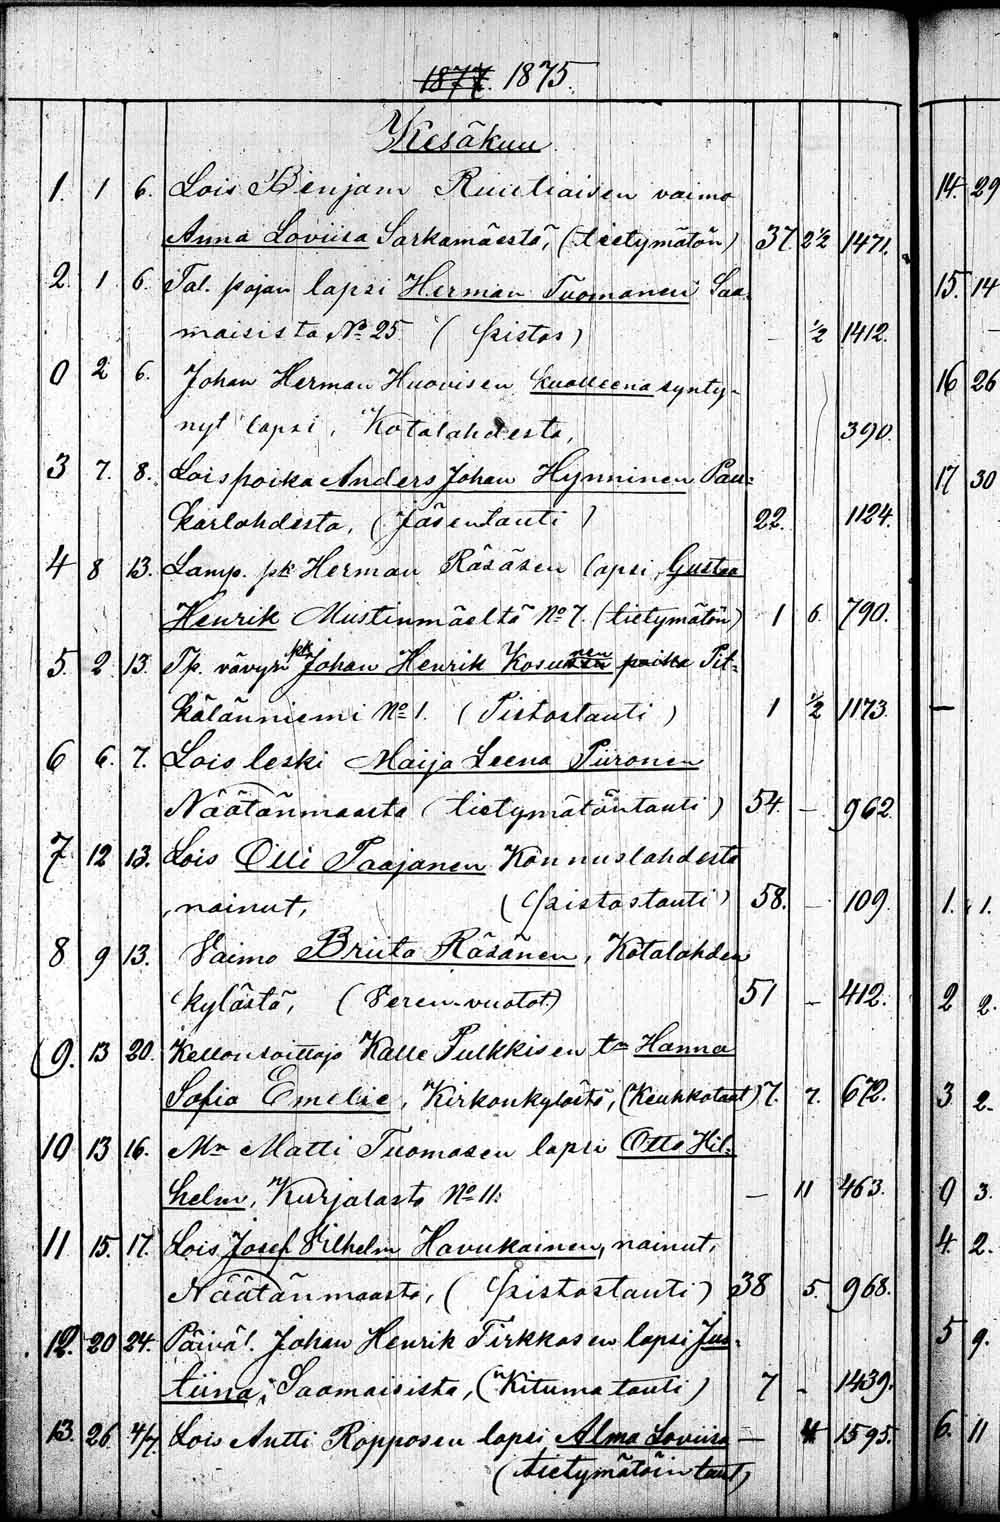 1877. 1875.
Kesäkuu
1. 1 6. Lois Benjam vaimo
Anna Loviisa Sarkamäestä, (tietymätön) 37. 2½ 1471.
2. 1 6. Tal. pojan lapsi Herman Tuomanen Saa-
maisista, No 25 (pistos) - ½ 1412.
0 2 6. Johan Herman Huovisen kuolleena synty-
nyt lapsi, Kotalahdesta, 390.
3 7. 8. Loispoika Anders Johan Hynninen Pau=
karlahdesta, (Jäsentauti) 22. 1124.
4 8 13. Lamp. pk Herman Räsäsen lapsi, Gustaa
Henrik Mustinmäeltä No 7. (tietymätön) 1 6. 790.
5. 2 13. Tp. vävyn pk Johan Henrik Kosunen poika Pit=
kälänniemi No 1. (Pistostauti) 1 ½ 1173.
6 6. 7. Lois leski Maija Leena Piironen
Näätänmaasta (tietymätöntauti) 54. - 962
7. 12 13. Lois Olli Taajanen Konnuslahdesta
nainut, (pistostauti) 58. - 109.
8 9 13. Vaimo Briita Räsänen, Kotalahden
kylästä, (Veren-vuotot) 51 - 412.
9. 13 20. Kellonsoittaja Kalle Pulkkisen tr Hanna
Sofia Emelie, Kirkonkylästä, (Keuhkotaut) 7. 7. 672.
10 13 16. Mr Matti Tuomasen lapsi Otto Hil=
helm, Kurjalasta No 11. - 11 463.
11 15. 17. Lois Josef Vilhelm Havukainen, nainut,
Näätänmaasta, (pistostauti) 38 5. 968.
12. 20 24. Päiväl. Johan Henrik Tirkkosen lapsi Jus-
tiina, Saamaisista, (Kituma tauti) 7 - 1439.
13. 26 4/7. Lois Antti Ropposen lapsi Alma Loviisa - 4 1595.
(tietymätöin taut)
14. 29
15. 14
16 26
17 30
-
1. 1.
2 2.
3 2.
0 3.
4. 2.
5 9.
6. 11